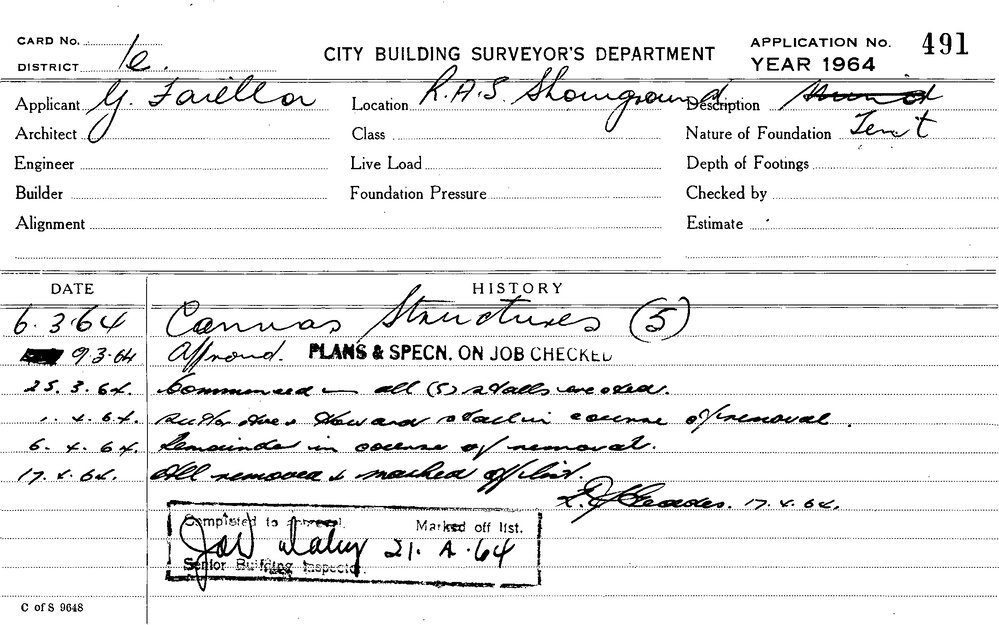 CARD No.
DISTRICT 1e.
CITY BUILDING SURVEYOR'S DEPARTMENT
APPLICATION No. 491
YEAR 1964
Applicant G. Faiella Location R.A.S. Showground Description
Architect Class Nature of Foundation Tent
Engineer Live Load Depth of Footings
Builder Foundation Pressure Checked by
Alignment Estimate
DATE HISTORY
6.3.64 Canvas Structures (5)
9.3.64 Approved. PLANS & SPECN. ON JOB CHECKED
25.3.64. Commenced all (5) stalls erected.
.4.64. Howard stall in course of removal.
6.4.64. Remainder in course of removal.
17.4.64. All removed & marked off list.
17.4.64.
Completed to approval. Marked off list.
21.4.64
Senior Building Inspector.
C of S 9648